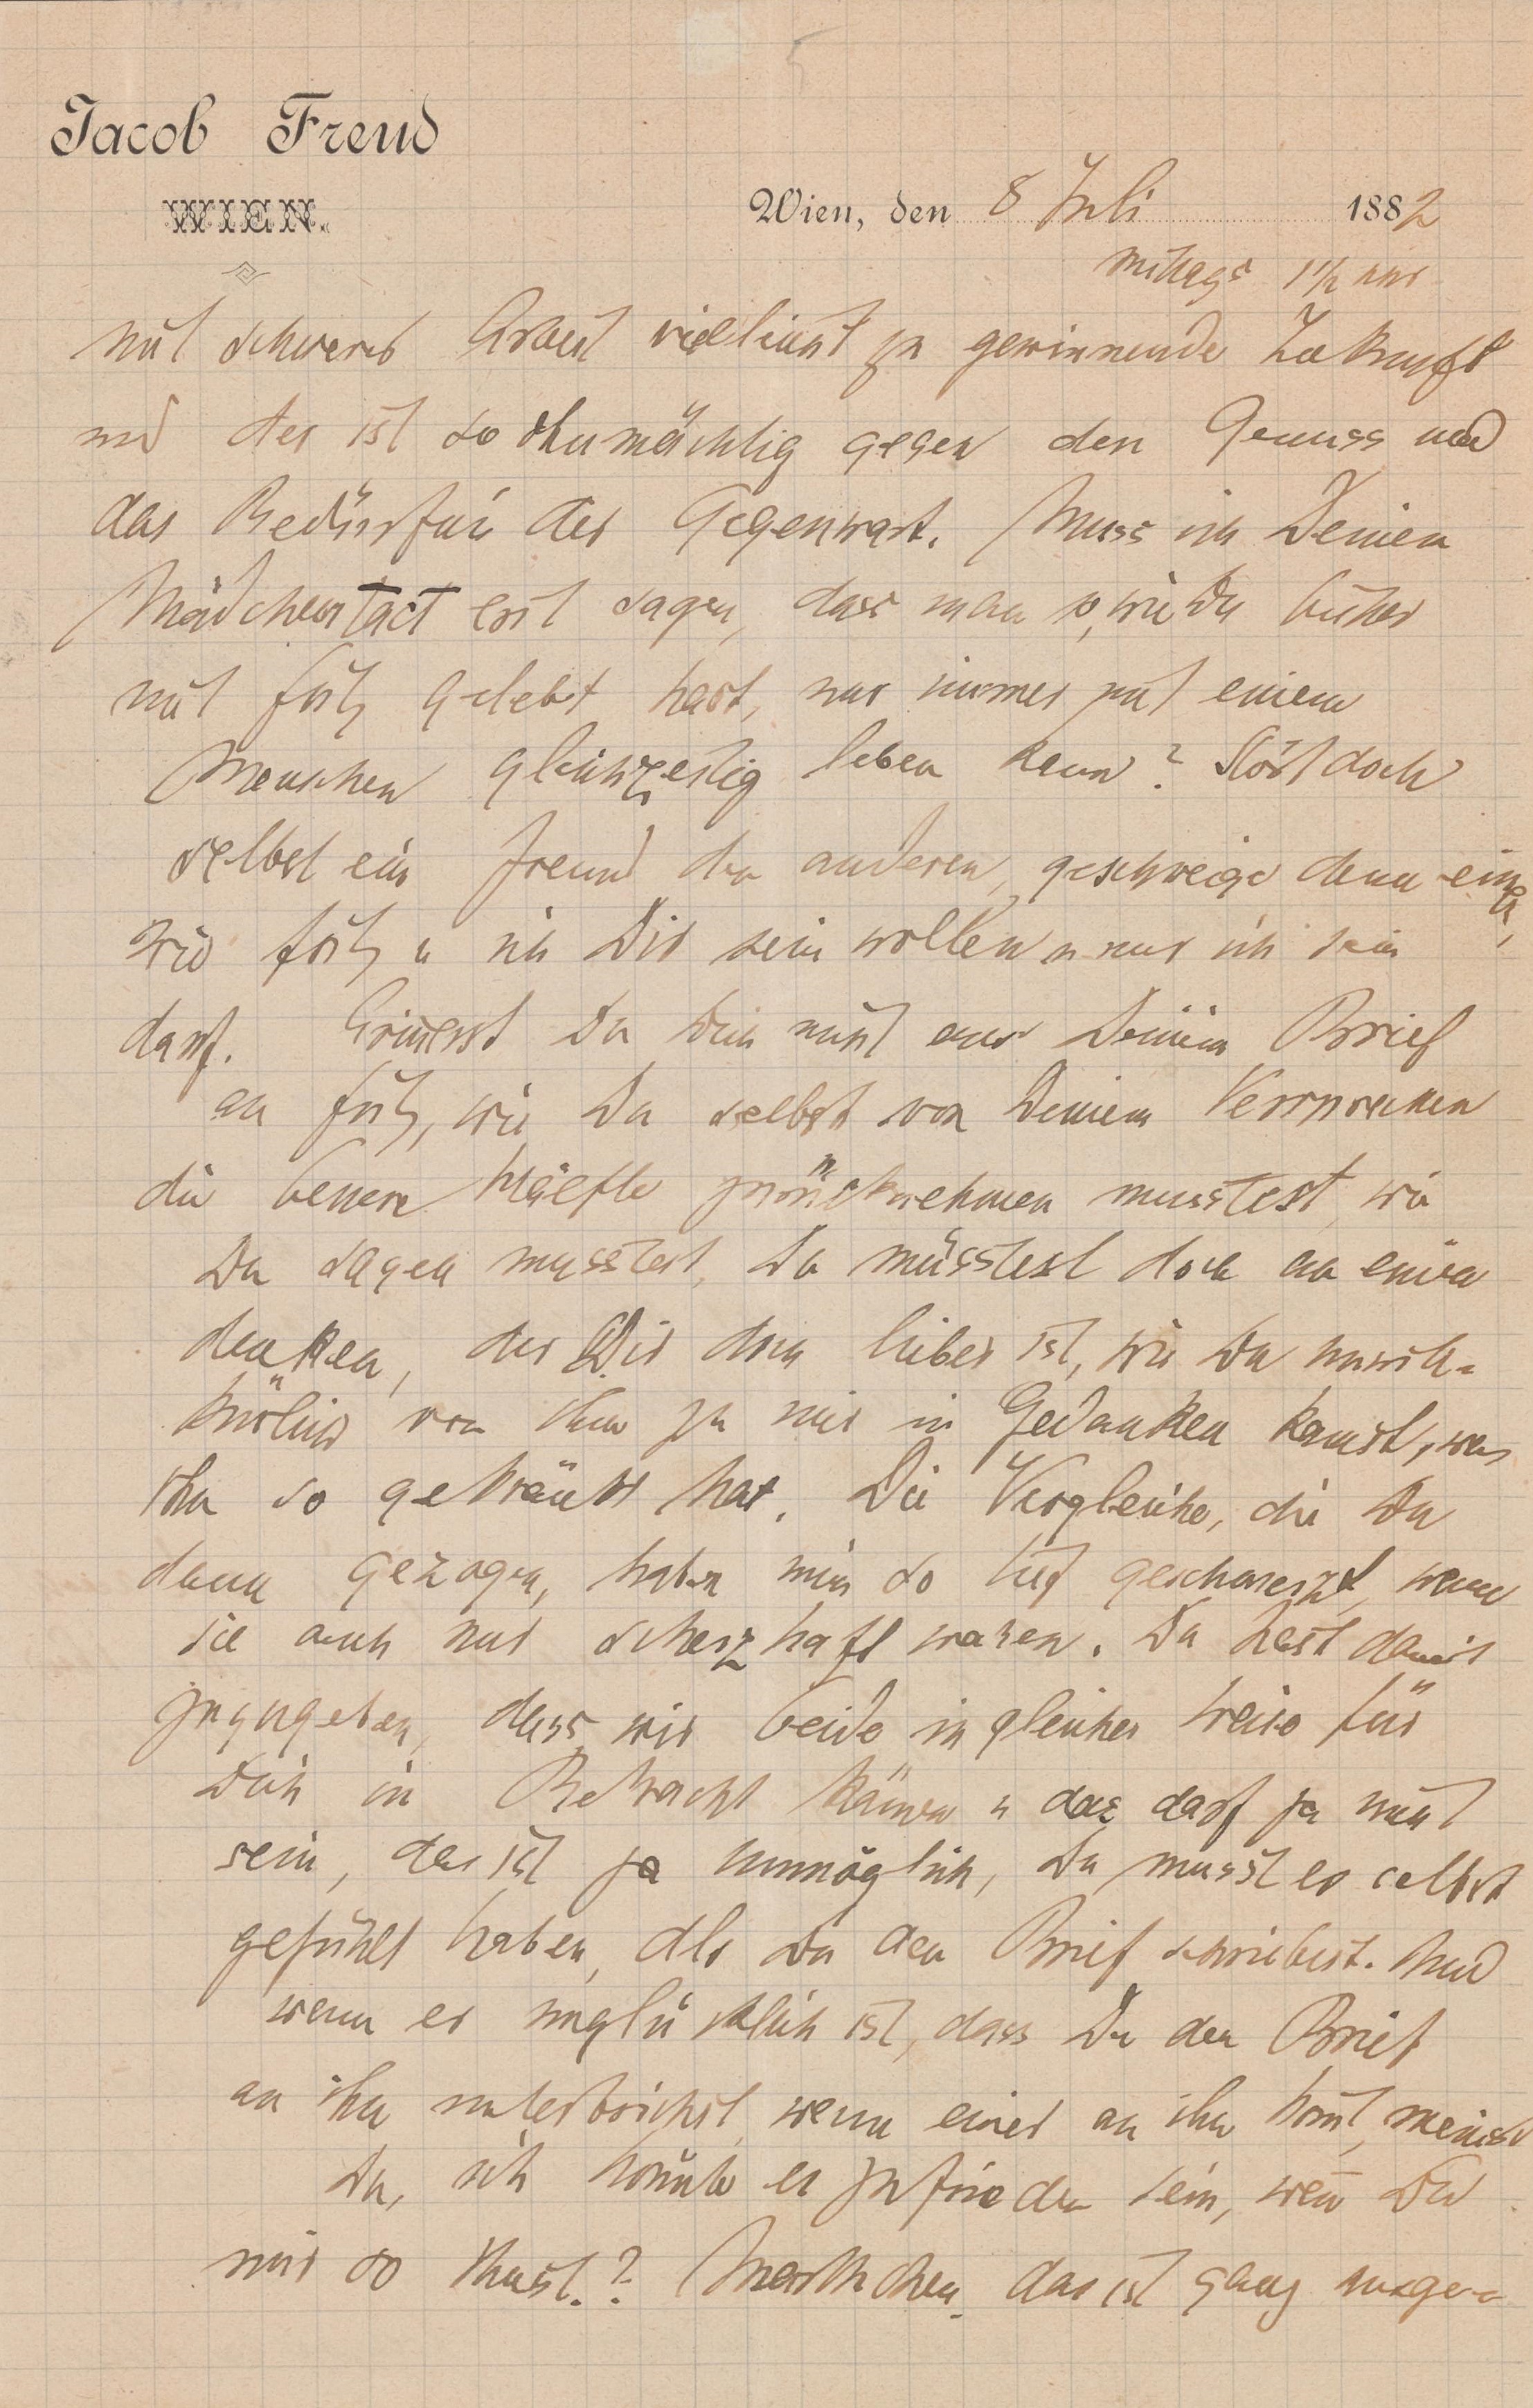 Jacob Freud
WIEN.
Wien, den 8 Juli 1882
mittags 1 1/2 Uhr
mit schwerer Arbeit vielleicht zu gewinnende Zukunft
und der ist so ohnmächtig gegen den Genuss und
das Bedürfnis der Gegenwart. Muss ich Deinem
Mädchentact erst sagen, dass man so, wie Du bisher
mit Fritz gelebt hast, nur immer mit einem
Menschen gleichzeitig leben kann? Stört doch
selbst ein Freund den anderen, geschweige denn einer,
wie Fritz u ich Dir sein wollen u nur ich sein
darf. Erinnerst Du Dich nicht aus Deinem Brief
an Fritz, wie Du selbst von Deinem Versprechen
die bessere Hälfte zurücknehmen musstest, wie
Du sagen musstest, Du müsstest doch an einen
denken, der Dir doch lieber ist, wie Du unwill-
kürlich von ihm zu mir in Gedanken kamst, was
ihn so gekränkt hat. Die Vergleiche, die Du
dann gezogen, haben mich so tief geschmerzt, wenn
sie auch nur scherzhaft waren. Du hast damit
zugegeben, dass wir beide in gleicher Weise für
Dich in Betracht kämen u das darf ja nicht
sein, das ist ja unmöglich, Du musst es selbst
gefühlt haben, als Du den Brief schriebest. Und
wenn er unglücklich ist, dass Du den Brief
an ihn unterbrichst, wenn einer an ihn kom̅t, meinst
Du, ich könnte es zufrieden sein, wen̅ Du
mir so thust.? Marthchen, das ist ganz ausge-